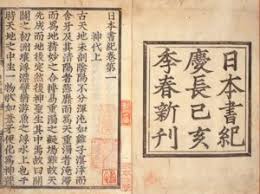 日本書紀
慶長己亥
季春新刊
日本書紀卷第一
神代上
古天地未剖陰陽不分渾沌如雞子溟涬
而含牙及其清陽者薄靡而爲天重濁者淹滯而
爲地精妙之合搏易重濁之凝竭難故天
先成而地後定然後神聖生其中焉故曰開
闢之初洲壤浮漂譬猶游魚之浮水上也于
時天地之中生一物狀如葦牙便化爲神